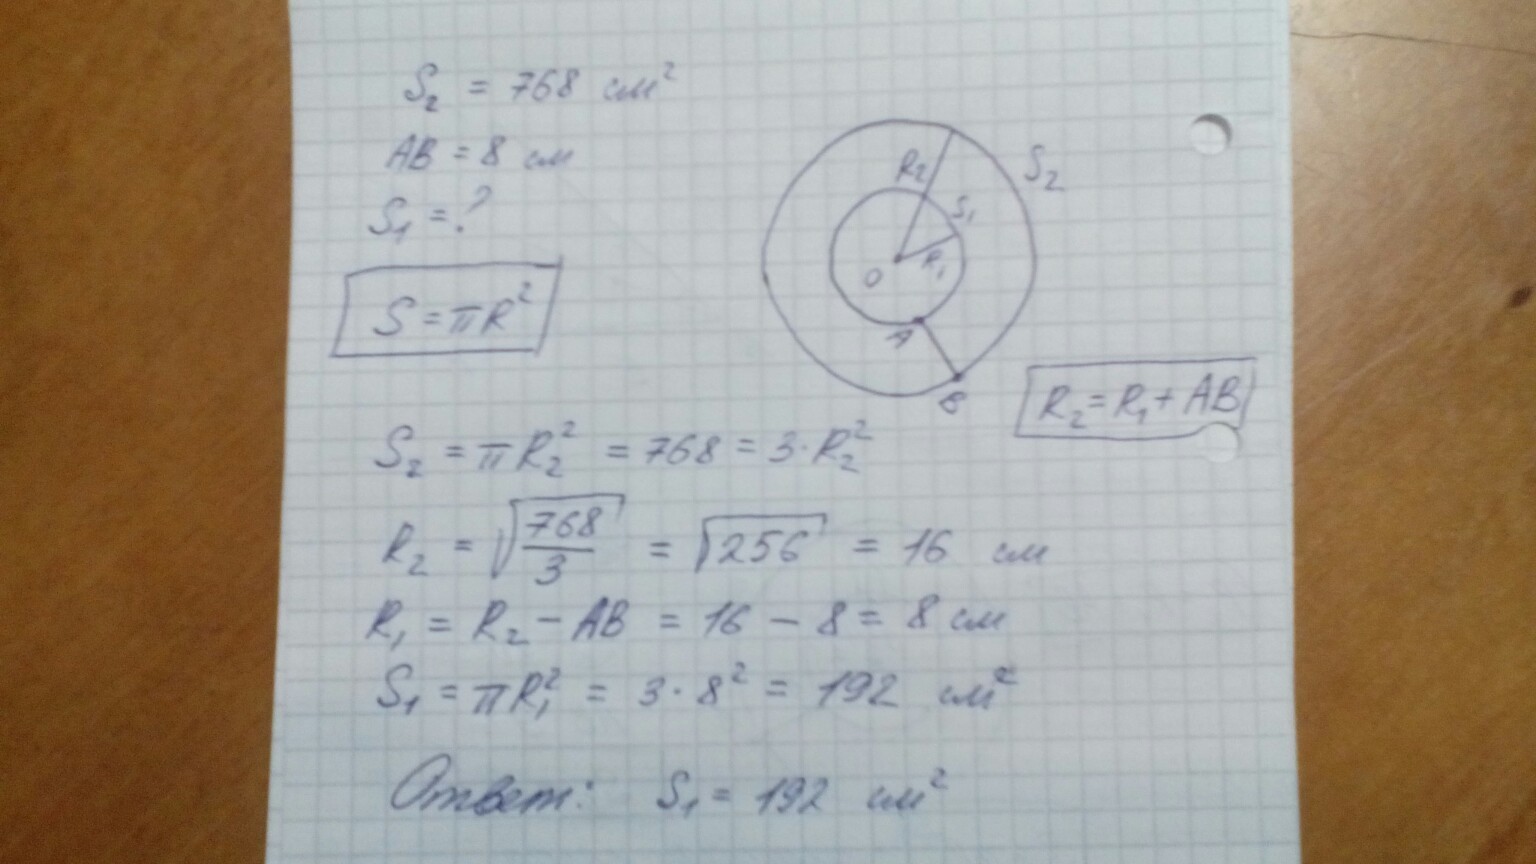 S₂ = 768 см²
AB = 8 см
S₁ = ?
S = πR²
R₂
S₂
S₁
R₁
O
A
B
R₂ = R₁ + AB
S₂ = πR₂² = 768 = 3·R₂²
R₂ = √(768/3) = √256 = 16 см
R₁ = R₂ − AB = 16 − 8 = 8 см
S₁ = πR₁² = 3·8² = 192 см²
Ответ: S₁ = 192 см²